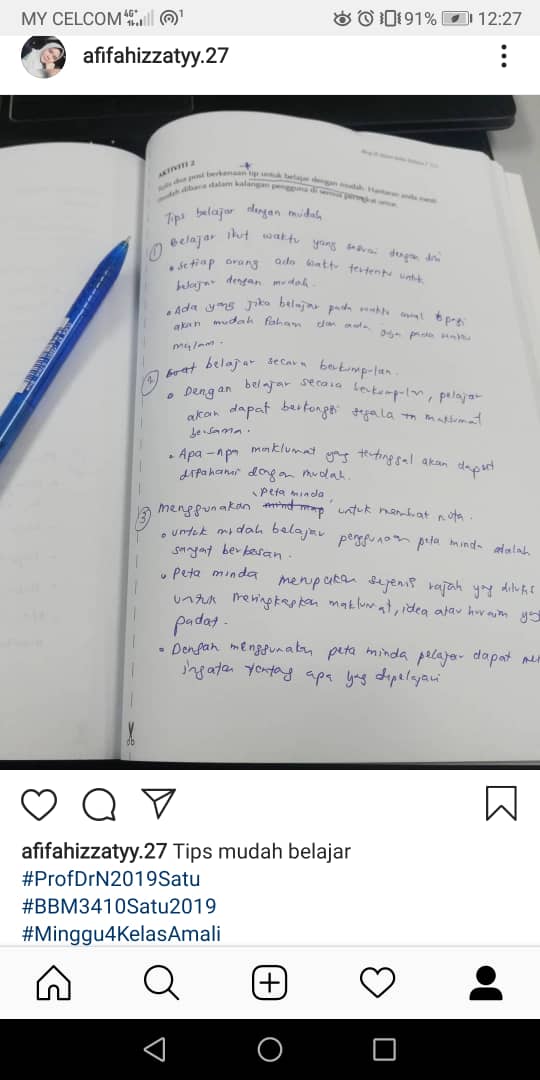 MY CELCOM 4G+ 1 91% 12:27
afifahizzatyy.27
AKTIVITI 2
Tulis dua post berkenaan tip untuk belajar dengan mudah. Hantaran anda mesti
mudah dibaca dalam kalangan pengguna di semua peringkat umur.
Tips belajar dengan mudah
① Belajar ikut waktu yang sesuai dengan diri
• Setiap orang ada waktu tertentu untuk
belajar dengan mudah.
• Ada yang jika belajar pada waktu awal pagi
akan mudah faham dan ada juga pada waktu
malam.
② belajar secara berkumpulan.
• Dengan belajar secara berkumpulan, pelajar
akan dapat berkongsi segala maklumat
bersama.
• Apa-apa maklumat yang tertinggal akan dapat
difahami dengan mudah.
③ menggunakan peta minda untuk membuat nota.
• untuk mudah belajar penggunaan peta minda adalah
sangat berkesan.
• Peta minda merupakan sejenis rajah yang
untuk meringkaskan maklumat, idea atau
padat.
• Dengan menggunakan peta minda pelajar dapat
ingatan tentang apa yang dipelajari
afifahizzatyy.27 Tips mudah belajar
#ProfDrN2019Satu
#BBM3410Satu2019
#Minggu4KelasAmali